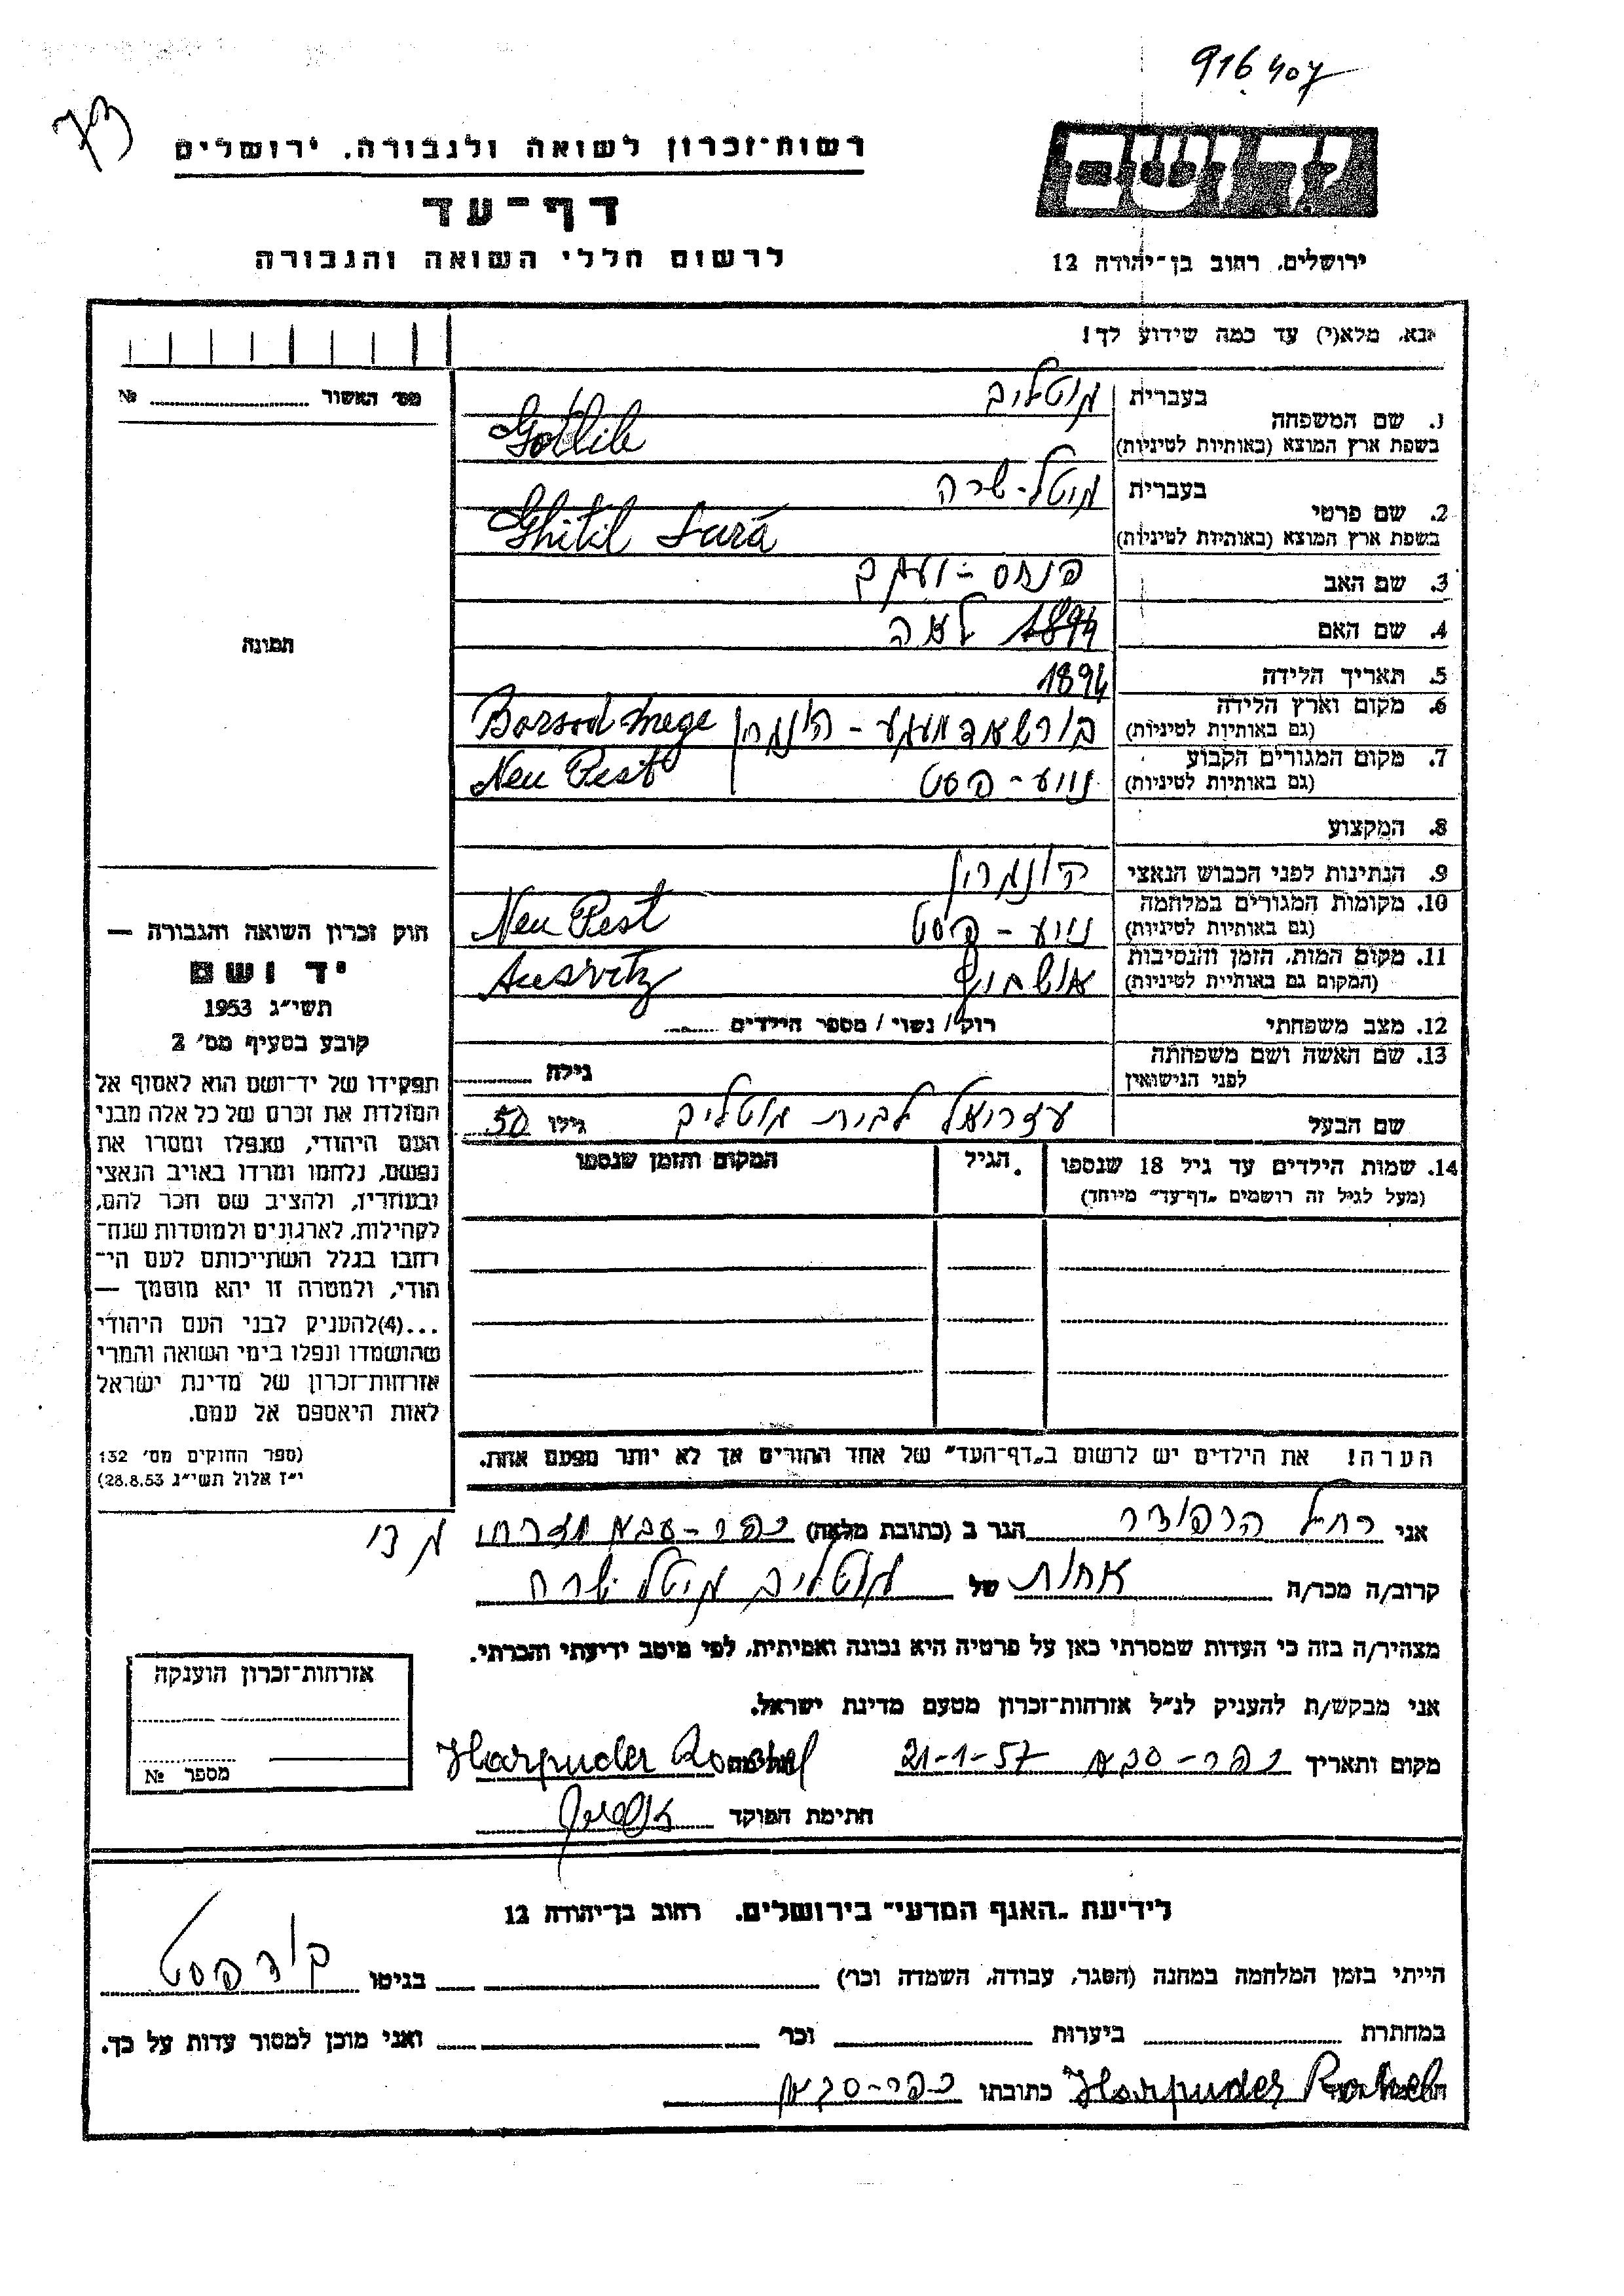 916407
רשות־זכרון לשואה ולגבורה. ירושלים
דף־עד
לרשום חללי השואה והגבורה
יד ושם
ירושלים. רחוב בן־יהודה 12
נא. מלא(י) עד כמה שידוע לך!
מס׳ האשור № 
1. שם המשפחה בעברית גוטליב
בשפת ארץ המוצא (באותיות לטיניות) Gotlib
2. שם פרטי בעברית גיטל-שרה
בשפת ארץ המוצא (באותיות לטיניות) Ghitil Sara
3. שם האב פנחס-יעקב
4. שם האם 1894 לאה
5. תאריך הלידה 1894
6. מקום וארץ הלידה (גם באותיות לטיניות) הונגרין Borsod mege
7. מקום המגורים הקבוע (גם באותיות לטיניות) נוע-פסט Neu Pest
8. המקצוע
9. הנתינות לפני הכבוש הנאצי הונגרין
10. מקומות המגורים במלחמה (גם באותיות לטיניות) נוע-פסט Neu Pest
11. מקום המות. הזמן והנסיבות (המקום גם באותיית לטיניות) אושוויץ Ausvitz
12. מצב משפחתי רוק / נשוי / מספר הילדים
13. שם האשה ושם משפחתה לפני הנישואין גילה
שם הבעל עזריאל לבית גוטליב גילו 50
14. שמות הילדים עד גיל 18 שנספו הגיל המקום והזמן שנספו
(מעל לגיל זה רושמים „דף־עד״ מיוחד)
הערה! את הילדים יש לרשום ב„דף־העד״ של אחד ההורים אך לא יותר מפעם אחת.
תמונה
חוק זכרון השואה והגבורה —
יד ושם
תשי״ג 1953
קובע בסעיף מס׳ 2
תפקידו של יד־ושם הוא לאסוף אל
המולדת את זכרם של כל אלה מבני
העם היהודי, שנפלו ומסרו את
נפשם, נלחמו ומרדו באויב הנאצי
ובעוזריו, ולהציב שם וזכר להם,
לקהילות, לארגונים ולמוסדות שנח־
רחבו בגלל השתייכותם לעם הי־
הודי, ולמטרה זו יהא מוסמך —
...(4)להעניק לבני העם היהודי
שהושמדו ונפלו בימי השואה והמרי
אזרחות־זכרון של מדינת ישראל
לאות היאספם אל עמם.
(ספר החוקים מס׳ 132
י״ז אלול תשי״ג 28.8.53)
אני רחל הרפודר הגר ב (כתובת מלאה) כפר-סבא
קרוב/ה מכר/ה אחות של גוטליב גיטל שרה
מצהיר/ה בזה כי העדות שמסרתי כאן על פרטיה היא נכונה ואמיתית, לפי מיטב ידיעתי והכרתי.
אני מבקש/ת להעניק לנ״ל אזרחות־זכרון מטעם מדינת ישראל.
מקום ותאריך כפר-סבא 21-1-57 Harpuder Rachel
חתימת הפוקד
אזרחות־זכרון הוענקה
מספר №
לידיעת „האגף המדעי״ בירושלים. רחוב בן־יהודה 12
הייתי בזמן המלחמה במחנה (הסגר, עבודה, השמדה וכר׳) בגיטו בודפסט
במחתרת ביערות וכר׳ ואני מוכן למסור עדות על כך.
Harpuder Rachel כתובתו כפר-סבא